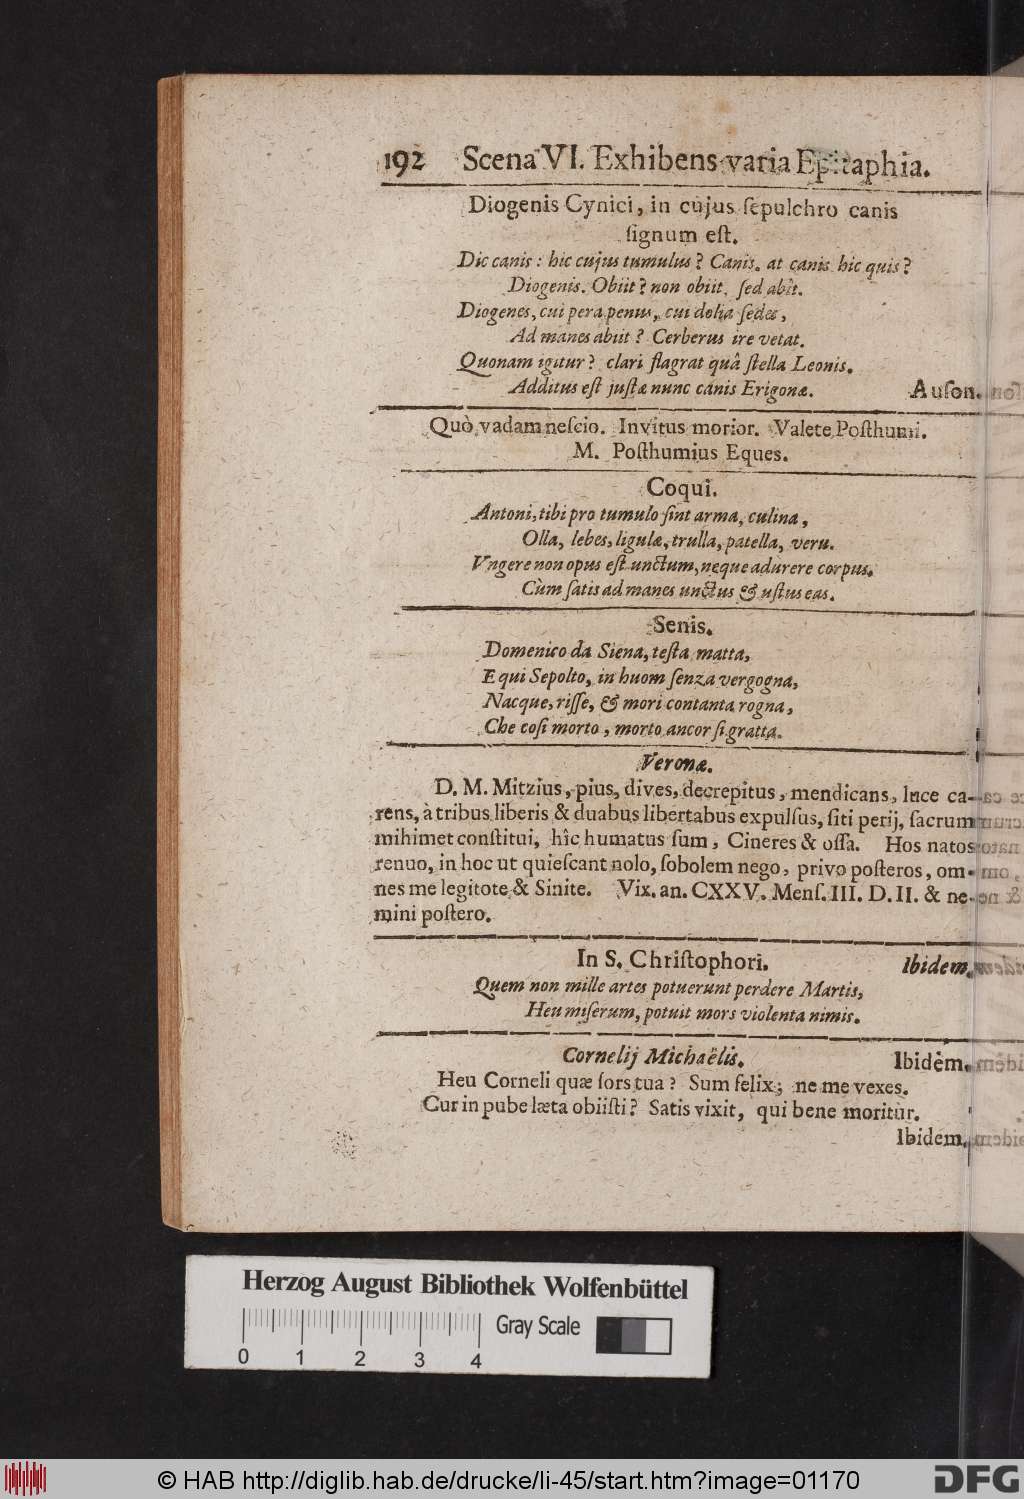 192 Scena VI. Exhibens varia Epitaphia.
Diogenis Cynici, in cujus ſepulchro canis
ſignum eſt.
Dic canis : hic cujus tumulus? Canis. at canis hic quis?
Diogenis. Obiit? non obiit, ſed abît.
Diogenes, cui pera penus, cui dolia ſedes,
Ad manes abiit? Cerberus ire vetat.
Quonam igitur? clari flagrat quâ ſtella Leonis.
Additus eſt juſtæ nunc canis Erigonæ. Auſon.
Quò vadam neſcio. Invitus morior. Valete Poſthumi.
M. Poſthumius Eques.
Coqui.
Antoni, tibi pro tumulo ſint arma, culina,
Olla, lebes, ligulæ, trulla, patella, veru.
Vngere non opus eſt unctum, neque adurere corpus.
Cùm ſatis ad manes unctus & uſtus eas.
Senis.
Domenico da Siena, teſta matta,
E qui Sepolto, in huom ſenza vergogna,
Nacque, riſſe, & mori contanta rogna,
Che coſi morto, morto ancor ſi gratta.
Veronæ.
D. M. Mitzius, pius, dives, decrepitus, mendicans, luce ca-
rens, à tribus liberis & duabus libertabus expulſus, ſiti perij, ſacrum
mihimet conſtitui, hîc humatus ſum, Cineres & oſſa. Hos natos
renuo, in hoc ut quieſcant nolo, ſobolem nego, privo poſteros, om-
nes me legitote & Sinite. Vix. an. CXXV. Menſ. III. D. II. & ne-
mini poſtero.
In S. Chriſtophori. Ibidem.
Quem non mille artes potuerunt perdere Martis,
Heu miſerum, potuit mors violenta nimis.
Cornelij Michaëlis. Ibidem.
Heu Corneli quæ ſors tua? Sum felix; ne me vexes.
Cur in pube læta obiiſti? Satis vixit, qui bene moritur.
Ibidem.
Herzog August Bibliothek Wolfenbüttel
Gray Scale
0 1 2 3 4
© HAB http://diglib.hab.de/drucke/li-45/start.htm?image=01170
DFG